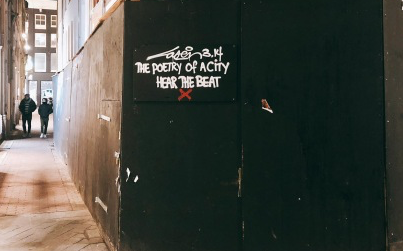 Laser 3.14
THE POETRY OF A CITY
HEAR THE BEAT
X